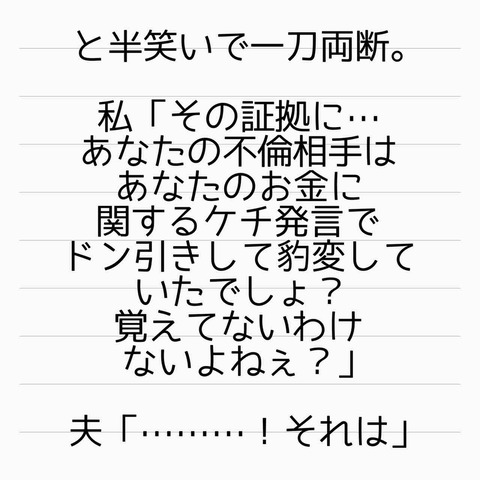 と半笑いで一刀両断。
私「その証拠に…
あなたの不倫相手は
あなたのお金に
関するケチ発言で
ドン引きして豹変して
いたでしょ？
覚えてないわけ
ないよねぇ？」
夫「………！それは」